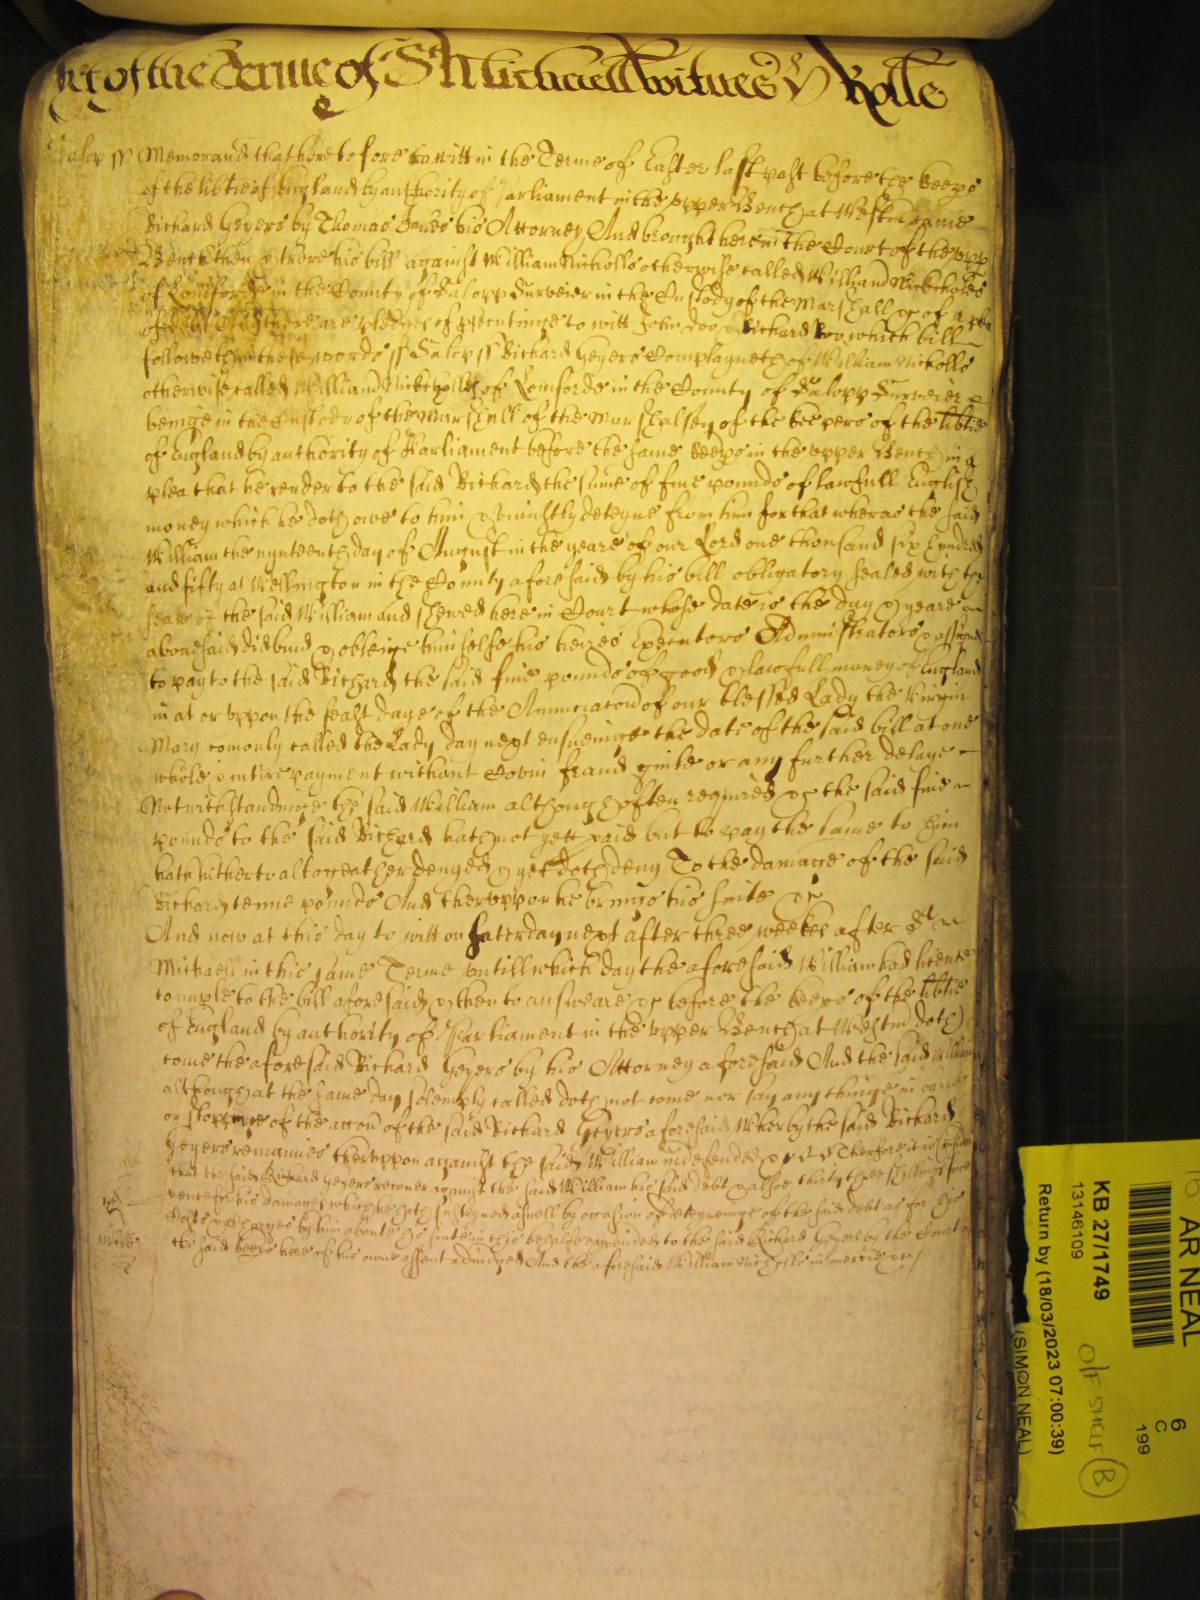 yet of the Terme of St Michaell witnes H Rolle
Salop ss Memorand that heretofore to witt in the Terme of Easter last past before the keeps
of the libtie of England by authority of Parliament in the upper Bench at Westm came
Richard Geyers by Thomas Jones his Attorney And brought here in the Court of the upp
Bench then & there his bill against William Nicholls otherwise called William Nickcholes
of Lomforde in the County of Salopp Surveier in the Custody of the Marshall &c of a plea
of debt And there are pledges of psentinge to witt John Doo & Richard Roo which bill
followeth in these words ss Salop ss Richard Geyers Complayneth of William Nicholls
otherwise called William Nickcholles of Lomforde in the County of Salopp Surveier
beinge in the Custody of the Marshall of the Marshalsey of the keepers of the libtie
of England by authority of Parliament before the same keeps in the upper Bench in a
plea that he render to the said Richard the sume of five pounds of lawfull English
money which he doth owe to him & uniustly deteyne from him for that wheras the said
William the nynteenth day of August in the yeare of our Lord one thousand six hundred
and fifty at Wellington in the County aforesaid by his bill obligatory sealed with the
seale of the said William and shewed here in Court whose date is the day & yeare
abovesaid did bind & obleige himselfe his heires Executors Administrators & assignes
to pay to the said Richard the said five pounds of good & lawfull money of England
in at or uppon the feast daye of the Anunciacon of our blessed Lady the Virgin
Mary comonly called the Lady day next ensueinge the date of the said bill at one
whole & intire payment without Covin fraud guile or any further delaye
Notwithstandinge the said William although often required &c the said five
pounds to the said Richard hath not yett paid but to pay the same to him
hath hitherto altogeather denyed & yet doth deny To the damage of the said
Richard tenne pounds And theruppon he brings his suite &c
And now at this day to witt on Saterday next after three weekes after St
Michaell in this same Terme untill which day the aforesaid William had licence
to imple to the bill aforesaid & then to answeare &c before the keeps of the libtie
of England by authority of Parliament in the upper Bench at Westm doth
come the aforesaid Richard Geyers by his Attorney aforesaid And the said William
although at the same day solemply called doth not come nor say any thinge in barre
or stoppinge of the accon of the said Richard Geyers aforesaid Wherby the said Richard
Geyers remaines theruppon against the said William undefended &c Therfore it is considered
that the said Richard Geyers recover against the said William his said debt & alsoe thirty three shillings foure
pence for his damages which he hath susteyned aswell by occasion of deteyneinge of the said debt as for his
Costs & Charges by him aboute his suite in this behalfe expended to the said Richard Geyers by the Court of
the said keeps here of his owne assent adiudged And the aforesaid William Nicholls in mercie &c
mcie
AR NEAL
6
C
199
KB 27/1749
13146109
Return by (18/03/2023 07:00:39)
(SIMON NEAL)
O/F SHELF B